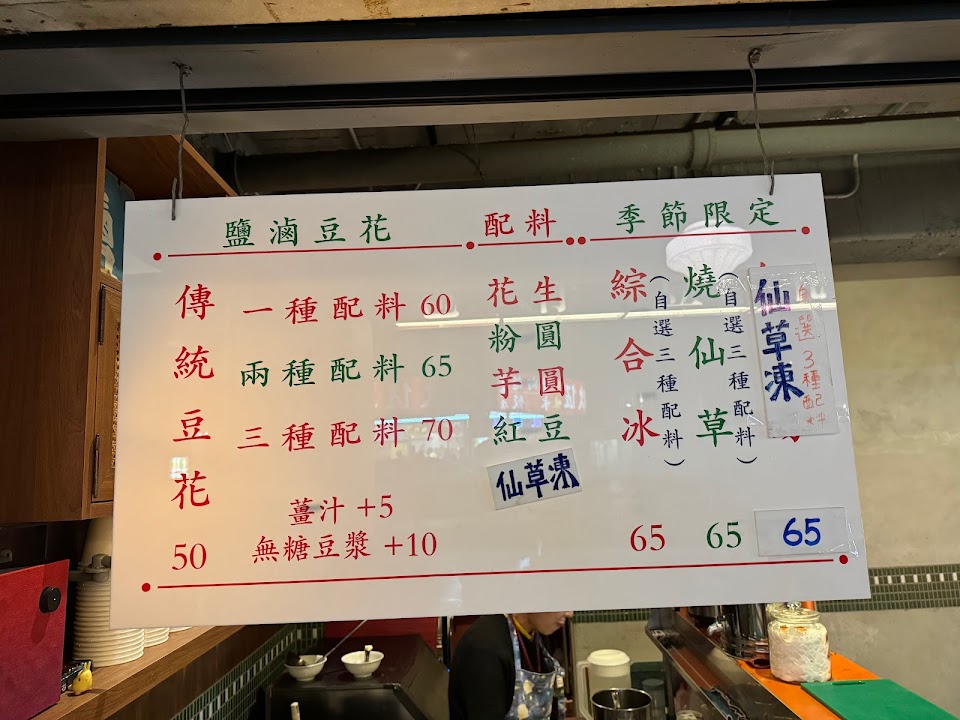 鹽滷豆花
傳統豆花
50
一種配料 60
兩種配料 65
三種配料 70
薑汁 +5
無糖豆漿 +10
配料
花生
粉圓
芋圓
紅豆
仙草凍
季節限定
綜合冰
(自選三種配料)
65
燒仙草
(自選三種配料)
65
仙草凍
自選3種配料
65